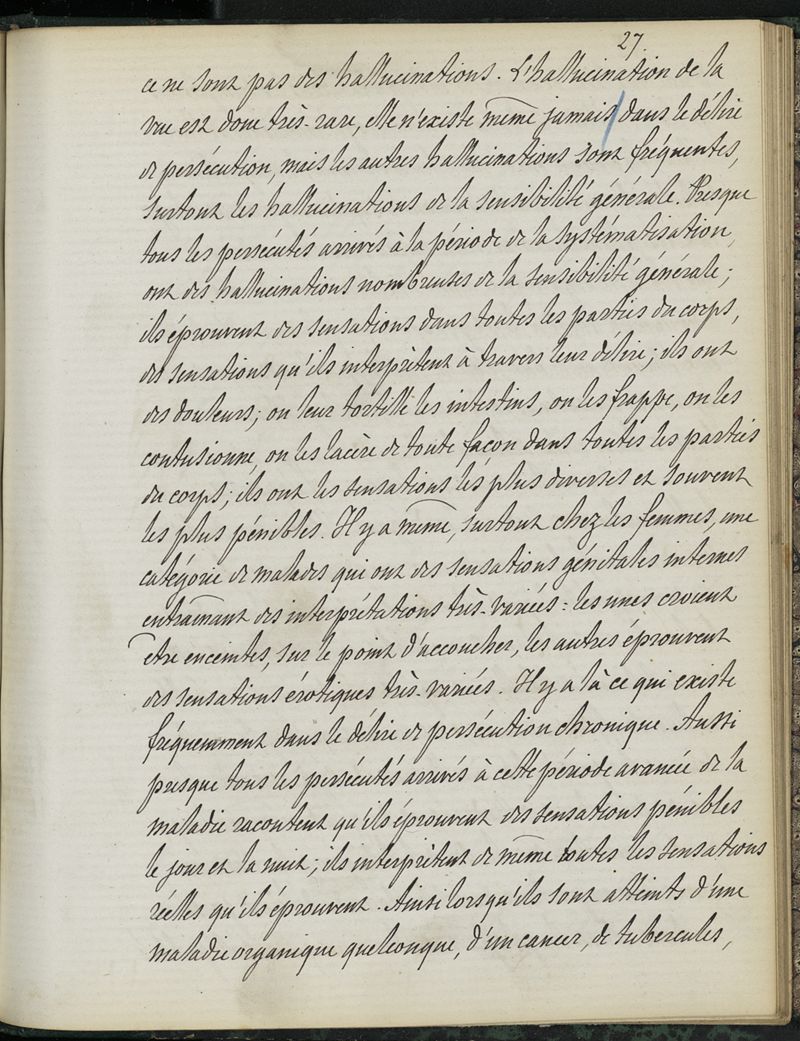 27
ce ne sont pas des hallucinations. L'hallucination de la
vue est donc très-rare, elle n'existe même jamais dans le délire
de persécution, mais les autres hallucinations sont fréquentes,
surtout les hallucinations de la sensibilité générale. Presque
tous les persécutés arrivés à la période de la systématisation,
ont des hallucinations nombreuses de la sensibilité générale;
ils éprouvent des sensations dans toutes les parties du corps,
des sensations qu'ils interprètent à travers leur délire; ils ont
des douleurs; on leur tortille les intestins, on les frappe, on les
contusionne, on les lacère de toute façon dans toutes les parties
du corps; ils ont les sensations les plus diverses et souvent
les plus pénibles. Il y a même, surtout chez les femmes, une
catégorie de malades qui ont des sensations génitales internes
entraînant des interprétations très-variées: les unes croient
être enceintes, sur le point d'accoucher, les autres éprouvent
des sensations érotiques très-variées. Il y a là ce qui existe
fréquemment dans le délire de persécution chronique. Aussi
presque tous les persécutés arrivés à cette période avancée de la
maladie racontent qu'ils éprouvent des sensations pénibles
le jour et la nuit; ils interprètent de même toutes les sensations
réelles qu'ils éprouvent. Ainsi lorsqu'ils sont atteints d'une
maladie organique quelconque, d'un cancer, de tubercules,